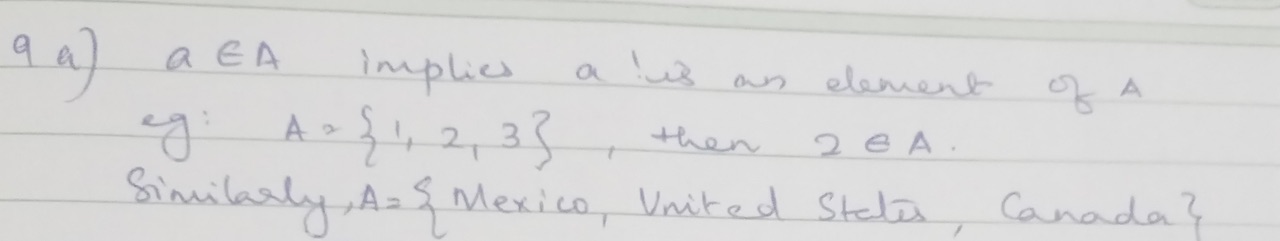 9 a) a ∈ A implies a is an element of A
eg: A = {1, 2, 3}, then 2 ∈ A.
Similarly, A = { Mexico, United States, Canada}